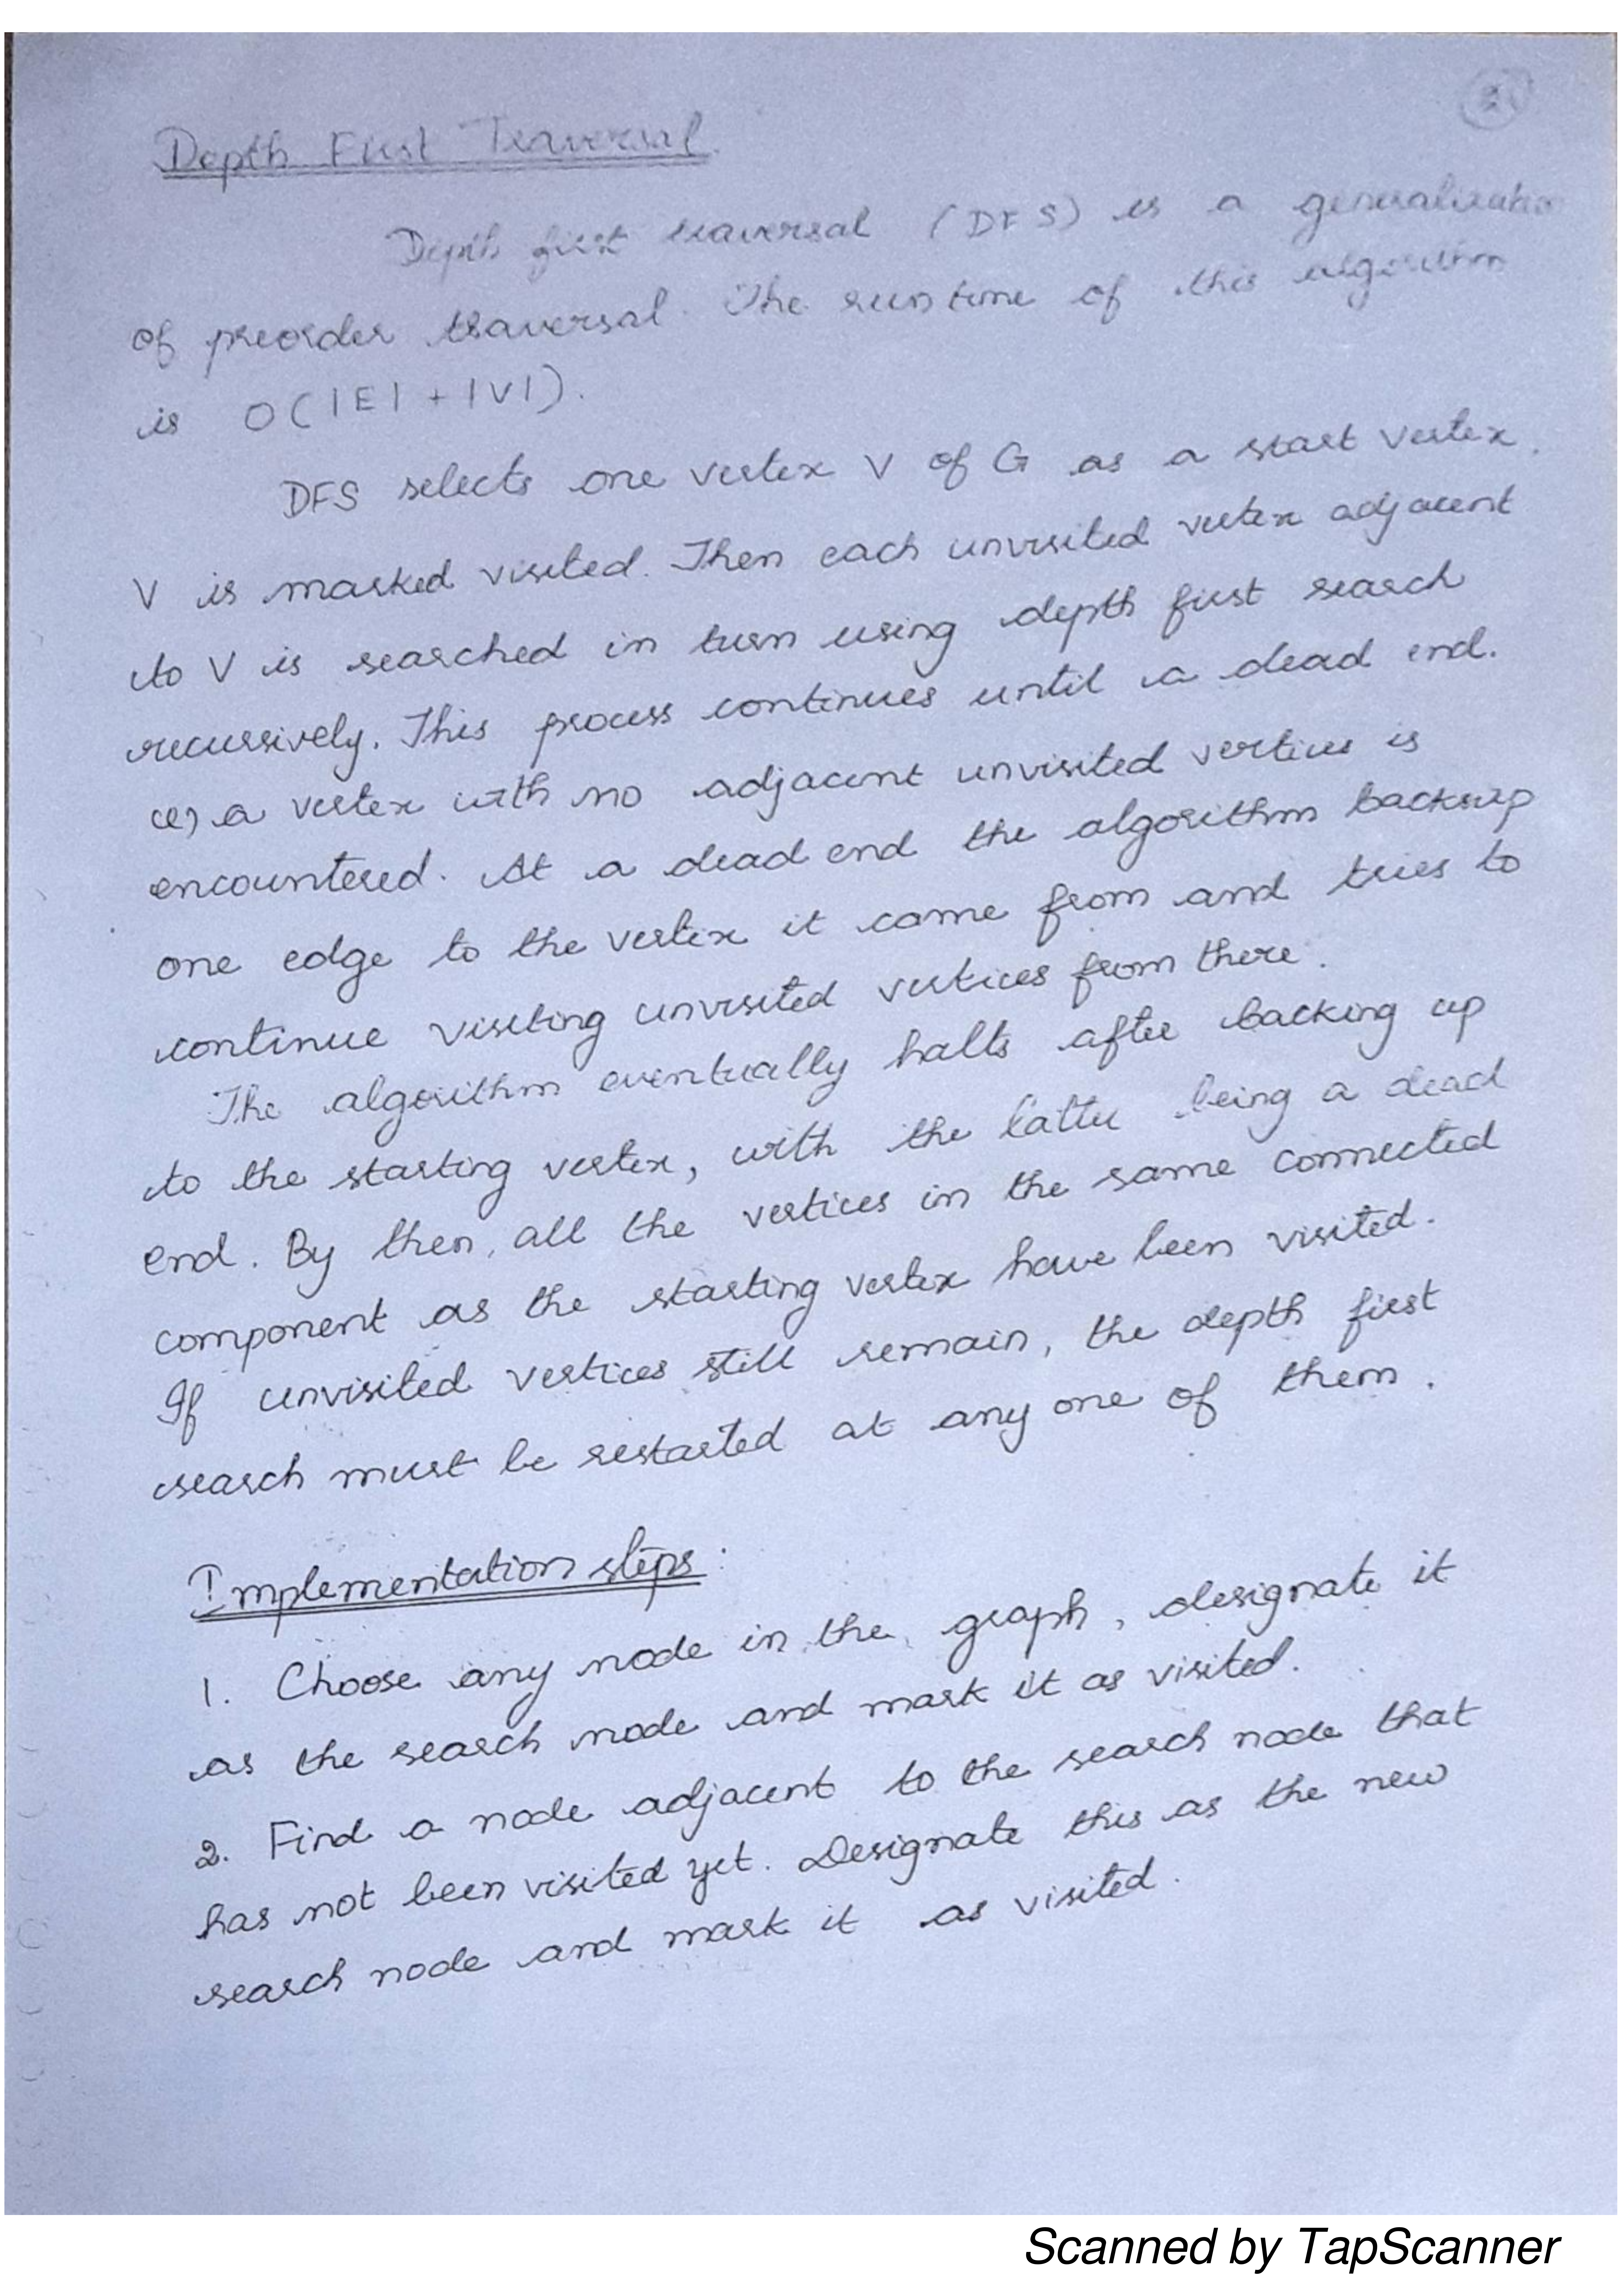 2
Depth First Traversal.
Depth first traversal (DFS) is a generalization
of preorder traversal. The run time of this algorithm
is O(|E| + |V|).
DFS selects one vertex V of G as a start vertex.
V is marked visited. Then each unvisited vertex adjacent
to V is searched in turn using depth first search
recursively. This process continues until a dead end.
(ie) a vertex with no adjacent unvisited vertices is
encountered. At a dead end the algorithm backsup
one edge to the vertex it came from and tries to
continue visiting unvisited vertices from there.
The algorithm eventually halts after backing up
to the starting vertex, with the latter being a dead
end. By then, all the vertices in the same connected
component as the starting vertex have been visited.
If unvisited vertices still remain, the depth first
search must be restarted at any one of them.
Implementation steps:
1. Choose any node in the graph, designate it
as the search node and mark it as visited.
2. Find a node adjacent to the search node that
has not been visited yet. Designate this as the new
search node and mark it as visited.
Scanned by TapScanner